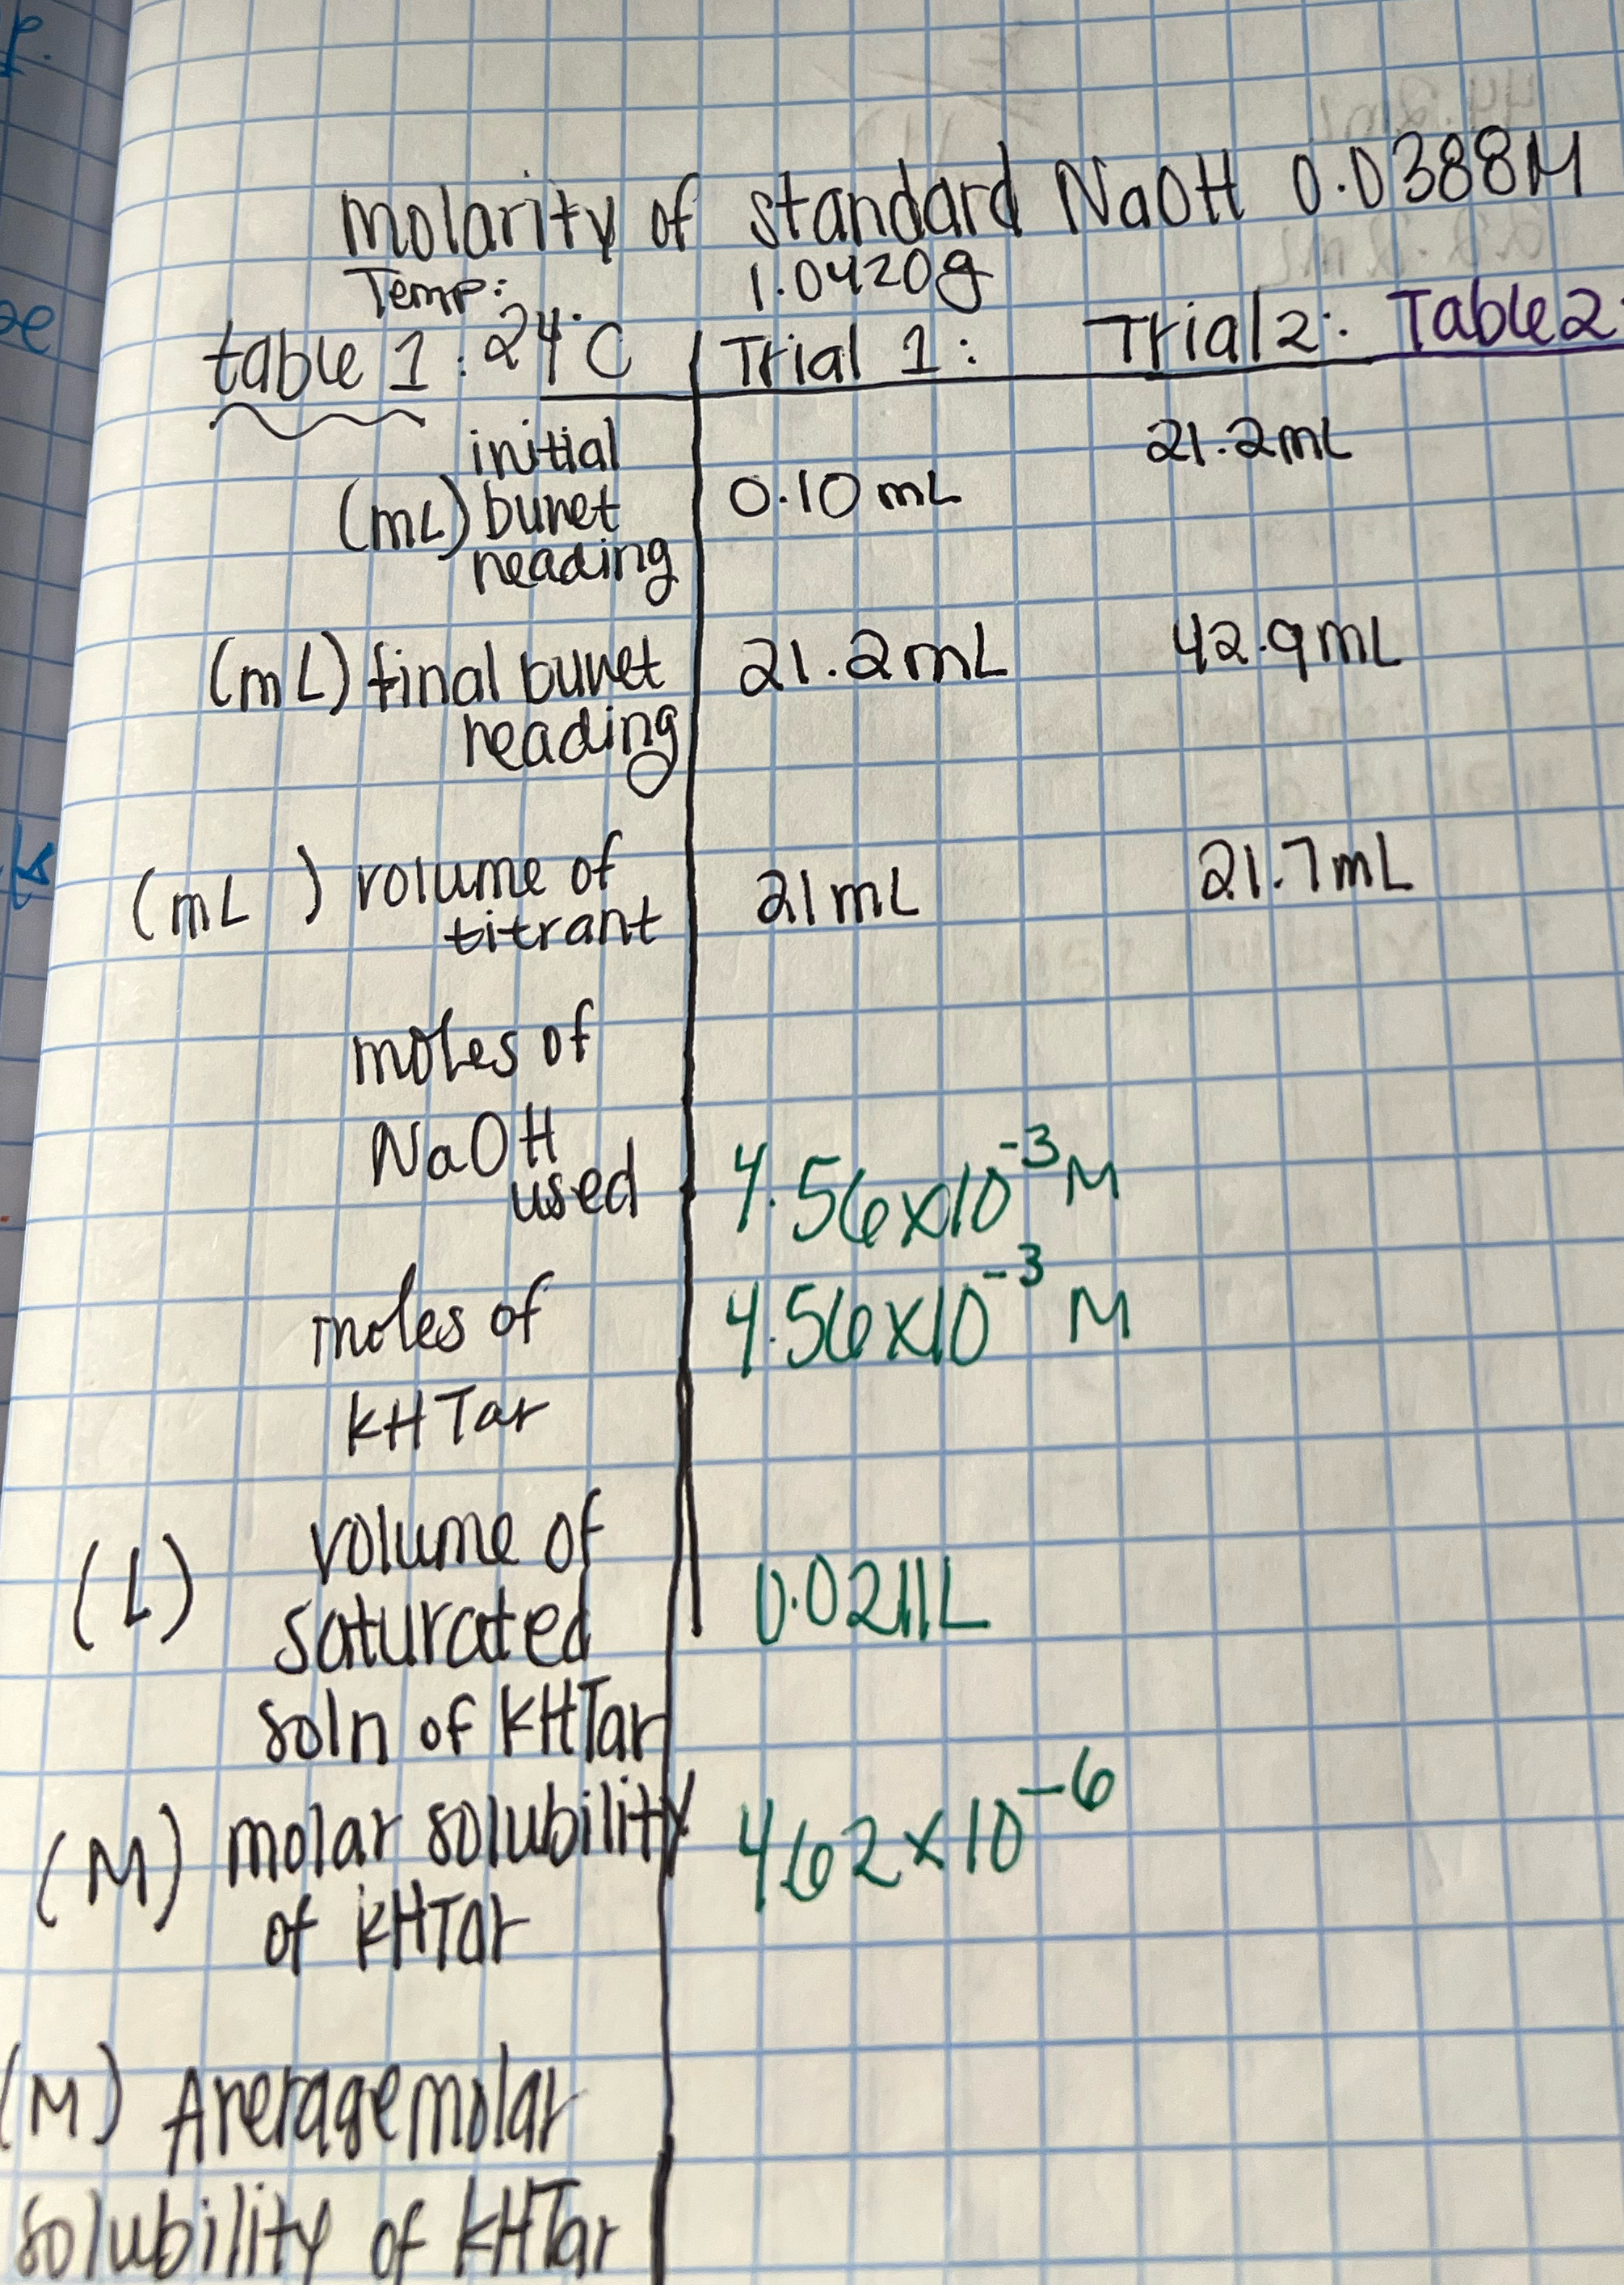 molarity of standard NaOH 0.0388M
Temp: 1.0420g
table 1: 24°C Trial 1: Trial 2: Table 2:
initial 21.2mL
(mL) buret 0.10 mL
reading
(mL) final buret 21.2mL 42.9mL
reading
(mL ) volume of 21mL 21.7mL
titrant
moles of
NaOH
used 4.56x10⁻³ M
moles of 4.56x10⁻³ M
kHTar
(L) volume of
saturated 0.0211L
soln of kHTar
(M) molar solubility 462x10⁻⁶
of kHTar
(M) Average molar
solubility of kHTar